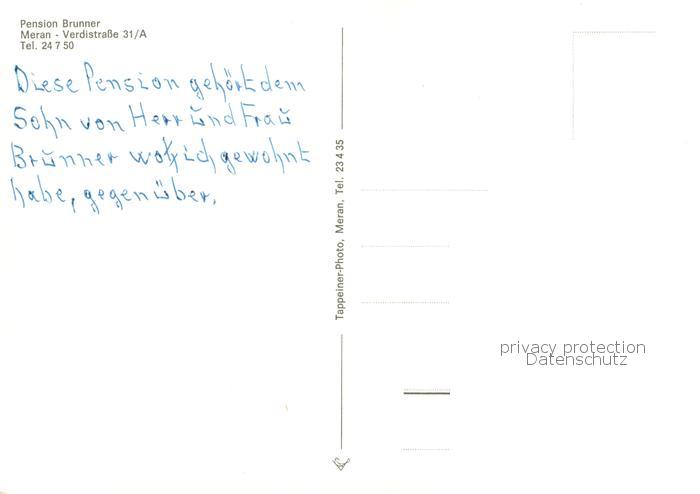 Pension Brunner
Meran - Verdistraße 31/A
Tel. 24 7 50
Diese Pension gehört dem
Sohn von Herr und Frau
Brunner wo ich gewohnt
habe, gegenüber.
Tappeiner-Photo, Meran, Tel. 23 4 35
privacy protection
Datenschutz